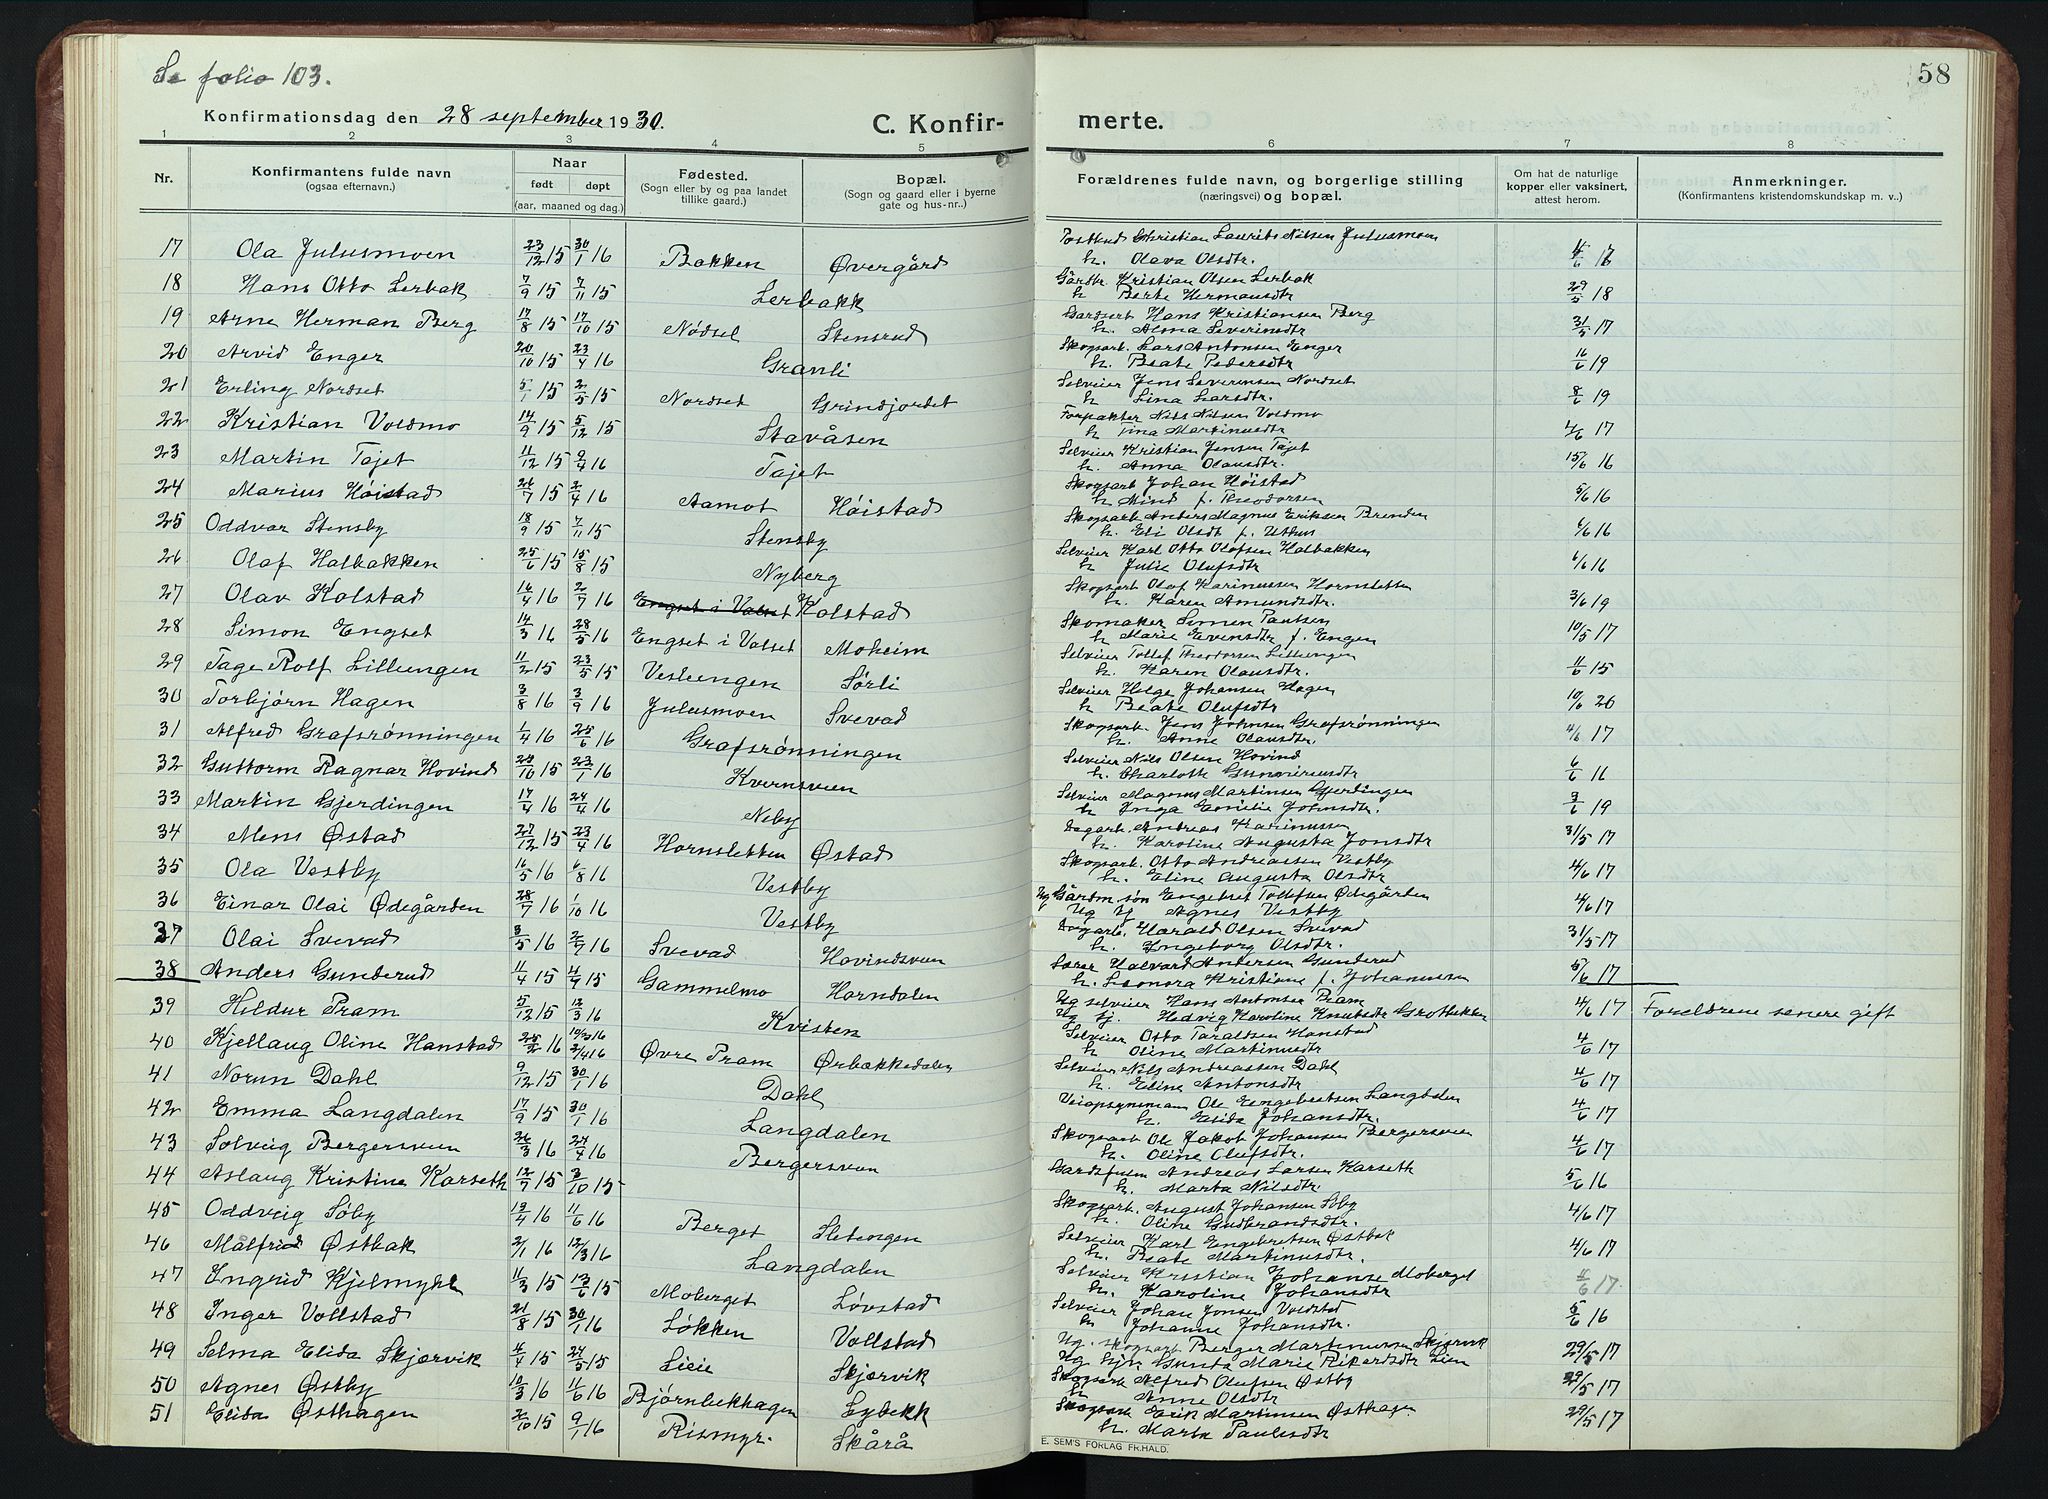 Se folio 103.
58
Konfirmationsdag den 28 september 1930.
C. Konfirmerte.
1 2 3 4 5 6 7 8
Nr.
Konfirmantens fulde navn
(ogsaa efternavn.)
Naar
født døpt
(aar, maaned og dag.)
Fødested.
(Sogn eller by og paa landet
tillike gaard.)
Bopæl.
(Sogn og gaard eller i byerne
gate og hus-nr..)
Forældrenes fulde navn, og borgerlige stilling
(næringsvei) og bopæl.
Om hat de naturlige
kopper eller vaksinert,
attest herom.
Anmerkninger.
(Konfirmantens kristendomskundskap m. v..)
17 Ola Julusmoen 23/12 15 30/1 16 Bakken Øvergård Christian Laurits Nilsen Julusmoen
h. Olava Olsdtr.
18 Hans Otto Lerbak 7/9 15 7/11 15 Lerbakk Gårdbr. Kristian Olsen Lerbak 29/5 18
h Berte Hermansdtr
19 Arne Herman Berg 17/8 15 17/10 15 Nødsel Stensrud Hans Kristiansen Berg 31/5 17
h. Alma Severinsdtr
20 Arvid Enger 20/10 15 23/4 16 Granli Skogsarb. Lars Antonsen Enger 16/6 19
h. Beate Pedersdtr
21 Erling Nordset 5/1 15 2/5 15 Nordset Grindjordet Selveier Jens Severinsen Nordset 8/6 19
h Lina Larsdtr.
22 Kristian Voldmo 14/9 15 5/12 15 Stavåsen Forpakter Nils Nilsen Voldmo 4/6 17
h Tina Martinusdtr
23 Martin Tajet 11/12 15 9/4 16 Tajet Selveier Kristian Jensen Tajet 15/6 16
h. Anna Olausdtr.
24 Marius Høistad 26/7 15 2/4 16 Aamot Høistad Skogsarb Johan Høistad 5/6 16
h Mind f. Theodorsen
25 Oddvar Stensby 18/9 15 7/11 15 Stensby Skogsarb Anders Magnus Eriksen Brenden 6/6 16
h. Eli Olsdt f. Uthus
26 Olaf Halbakken 25/6 15 15/8 15 Nyberg Selveier Karl Otto Olofsen Halbakken 6/6 16
h Julie Olufsdtr
27 Olav Kolstad 16/4 16 2/7 16 Engset i Valset Kolstad Skogsarb Olaf Karinussen Hornsletten 3/6 19
h. Karen Amundsdtr.
28 Simon Engset 14/3 16 28/5 16 Engset i Valset Moheim Skomaker Simen Paulsen 10/5 17
h Marie Evensdtr f. Engen
29 Tage Rolf Lilleengen 11/2 15 23/5 15 Vesleengen Sørli Selveier Tollef Theodorsen Lilleengen 11/6 15
h. Karen Olausdtr.
30 Torbjørn Hagen 3/8 16 3/9 16 Julusmoen Svevad Selveier Helge Johansen Hagen 10/6 20
h Beate Olufsdtr
31 Alfred Grafsrønningen 1/4 16 25/6 16 Grafsrønningen Skogsarb. Jens Johnsen Grafsrønningen 4/6 17
h. Anne Olausdtr.
32 Guttorm Ragnar Hovind 15 23/1 16 Kvernsveen Selveier Nils Olsen Hovind 6/6 16
h. Charlotte
33 Martin Gjerdingen 17/4 16 24/4 16 Neby Selveier Magnus Martinsen Gjerdingen 9/6 19
h Inga Emilie Johnsdtr.
34 Mens Østad 27/12 15 23/4 16 Hornsletten Østad Dagarb. Andreas Karinussen 31/5 17
h. Karoline Augusta Jonsdtr
35 Ola Vestby 16/5 16 6/8 16 Vestby Skogsarb. Otto Andreassen Vestby 4/6 17
h. Eline Augusta Olsdtr
36 Einar Olai Ødegården 28/7 16 1/10 16 Vestby Ug Gårdm. søn Engebret Tollefsen Ødegården 4/6 17
Ug Agnes Vestby
37 Olai Svevad 3/5 16 2/7 16 Svevad Hovindsveen Dagarb. Harald Olsen Svevad 31/5-17
h. Ingeborg Olsdtr.
38 Anders Gunderud 11/4 15 15 Gammelmo Horndalen Lærer Halvard Andersen Gunderud 5/6 17
h. Leonora Kristiane f. Johannesen
39 Hildur Pram 5/12 15 12/3 16 Kvisten Ug selveier Hans Antonsen Pram 4/6 17 Foreldrene senere gift
Ug pj. Hedvig Karoline Knutsdtr Grottekken
40 Kjellaug Oline Hanstad 16 19/3 16 Øvre Pram Ørbækkedalen Selveier Otto Taraldsen Hanstad 4/6 17
2/4 16 h Oline Martinusdtr
41 Norun Dahl 9/12 15 30/1 16 Dahl Selveier Nils Andreassen Dahl 4/6 17
h. Eline Antonsdtr
42 Emma Langdalen 17/9 15 30/1 16 Langdalen Veiopsynsmann Ole Engebretsen Langdalen 4/6 17
h. Elida Johansdtr.
43 Solveig Bergersveen 26/3 16 24/4 16 Bergersveen Skogsarb Ole Jakob Johansen Bergersveen 4/6 17
h. Oline Olufsdtr.
44 Aslaug Kristine Karseth 12/7 15 3/10 15 Andreas Larsen Karseth 5/6 16
h. Marta Nilsdtr.
45 Oddveig Søby 12/4 16 11/6 16 Berget Sletengen Skogsarb. August Johansen Søby 4/6 17
h. Oline Gudbrandsdtr.
46 Målfrid Østbak 2/1 16 12/3 16 Langdalen Selveier Karl Engebretsen Østbak 4/6 17
h. Beate Martinusdtr.
47 Ingrid Kjelmyhl 11/3 15 13/6 15 Moberget Løvstad Selveier Kristian Johanse Moberget 4/6 17.
h. Karoline Johansdtr
48 Inger Vollstad 21/8 15 30/1 16 Løkken Vollstad Selveier Johan Jonsen Voldstad 5/6 16
h. Johanne Johansdtr.
49 Selma Elida Skjærvik 4/4 15 24/5 15 Lieie Skjærvik Ug. skogsarb Berger Martinussen Skjærvik 29/5 17
Ug Gunda Marie Rikardsdtr Lien
50 Agnes Østby 10/3 16 11/6 16 Bjørnbekkhagen Lybekk Skogsarb Alfred Olufsen Østby 29/5 17
h Anne Olsdtr
51 Elida Østhagen 2/10 15 9/1 16 Rismyr. Skårå Skogsarb Erik Martinsen Østhagen 29/5 17
h. Marta Paulsdtr
E. SEM'S FORLAG FR.HALD.